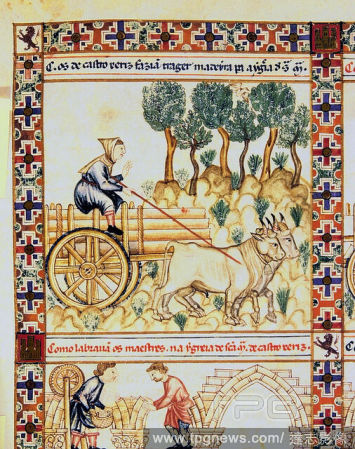 C. os de castro xeriz fazian trager madeira pa aygria d s. m.
Como labrauan os maestres. na ygreia de sca m. de castro xeriz.
TPG
www.tpgnews.com/
达志影像